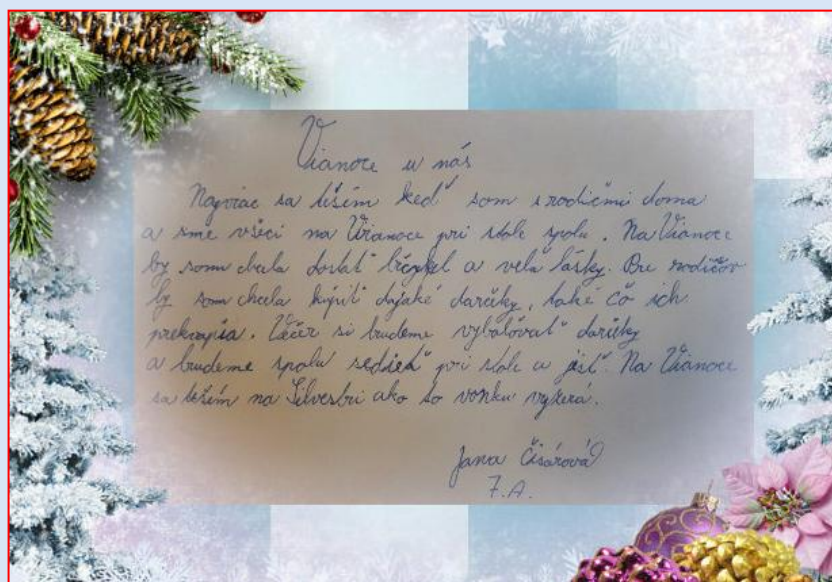 Vianoce u nás
Najviac sa teším keď som s rodičmi doma
a sme všeci na Vianoce pri stole spolu. Na Vianoce
by som chcela dostať bicykel a vela lásky. Pre rodičov
by som chcela kúpiť dajaké darčeky, také čo ich
prekvapia. Večer si budeme vybalovať darčeky
a budeme spolu sedieť pri stole a jesť. Na Vianoce
sa teším na Silvestri ako to vonku vyzerá.
Jana Čisárová
7.A.